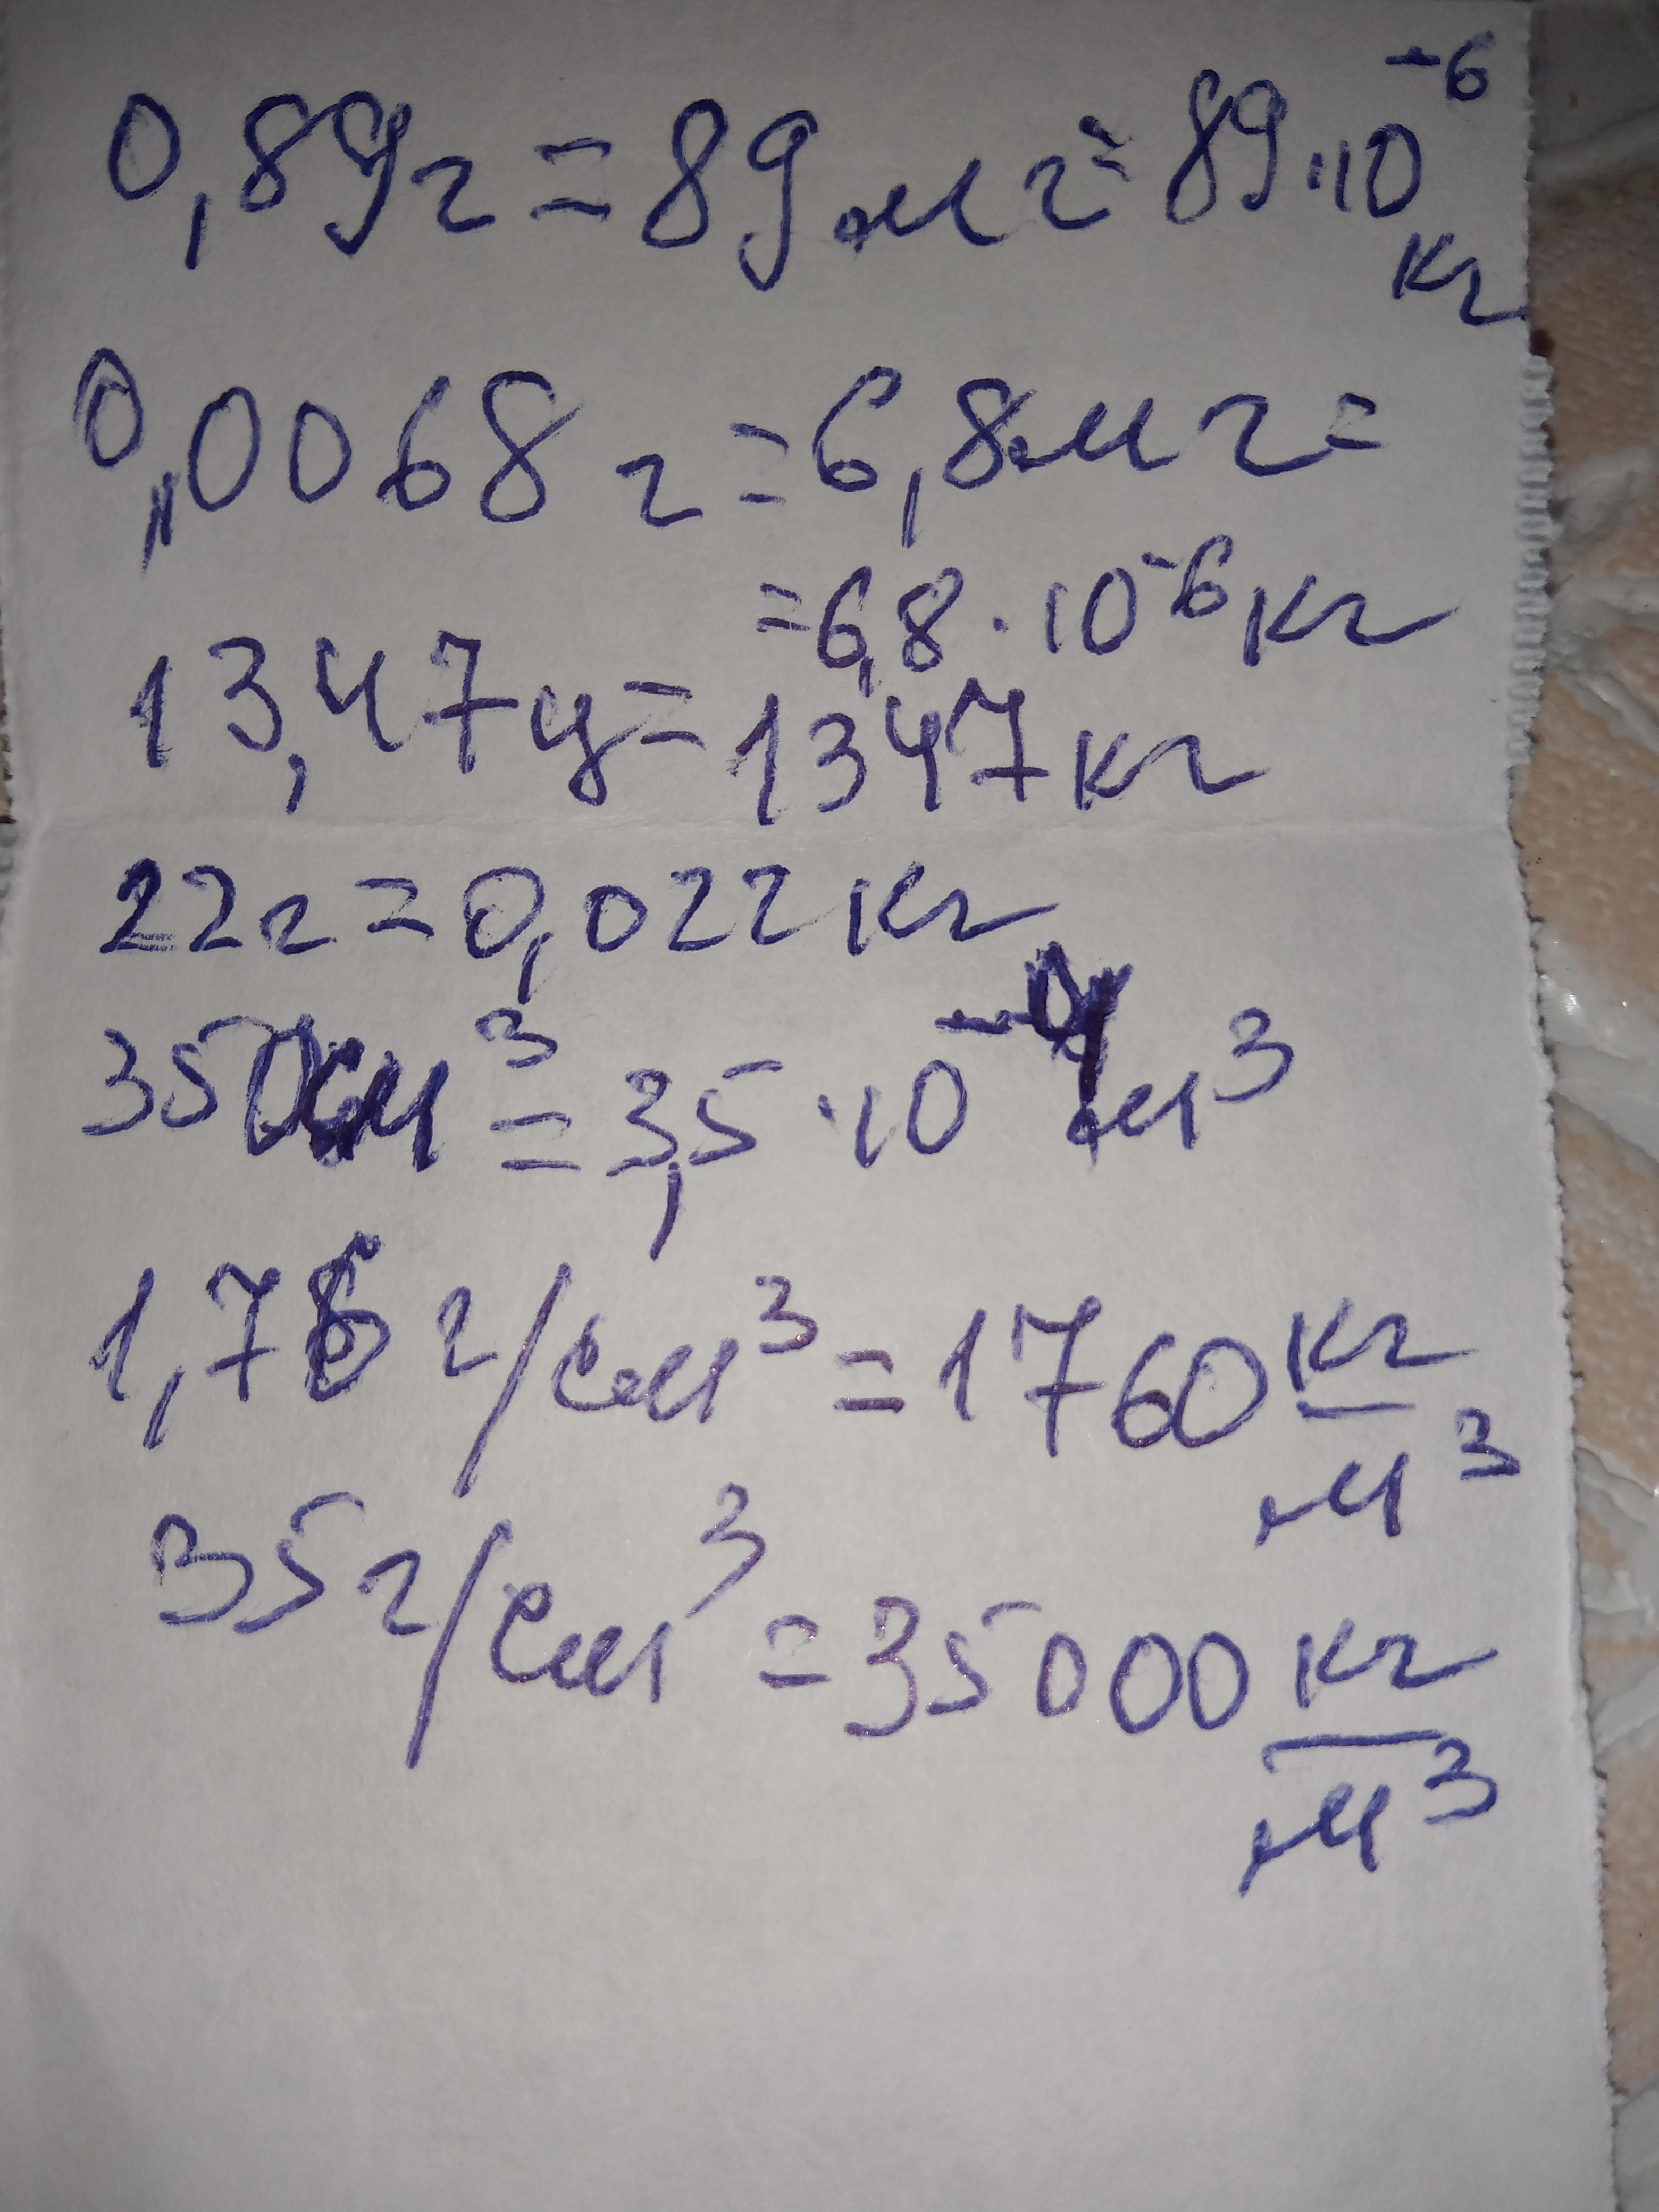 0,89г = 89 мг = 89·10⁻⁶ кг
0,0068 г = 6,8 мг =
= 6,8 · 10⁻⁶ кг
13,47 ц = 1347 кг
22г = 0,022 кг
350 см³ = 3,5 · 10⁻⁴ м³
1,76 г/см³ = 1760 кг/м³
35 г/см³ = 35000 кг/м³